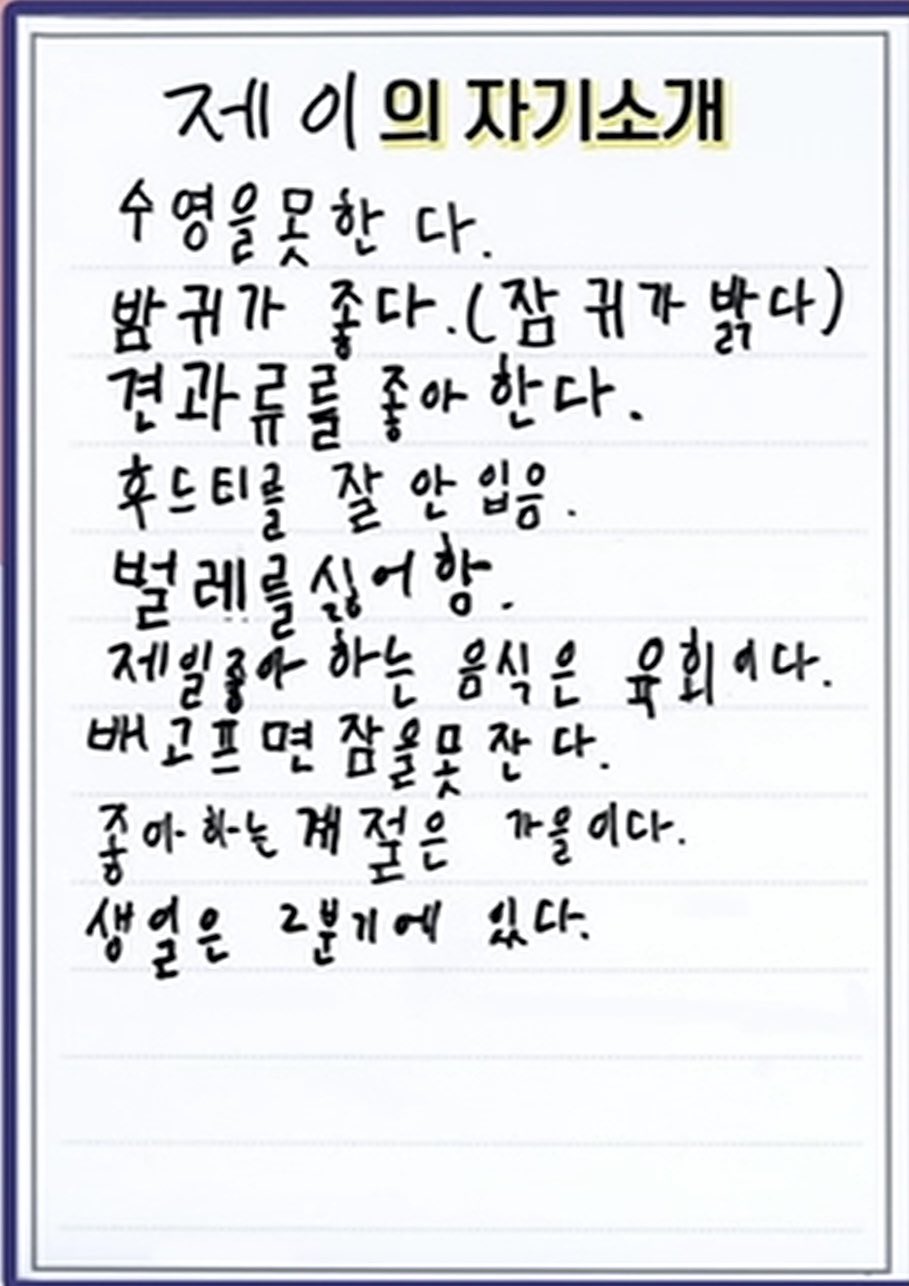 제이의 자기소개
수영을못한다.
밤귀가 좋다.(잠귀가 밝다)
견과류를 좋아한다.
후드티를 잘 안 입음.
벌레를싫어함.
제일좋아하는 음식은 육회이다.
배고프면 잠을못잔다.
좋아하는 계절은 가을이다.
생일은 2분기에 있다.